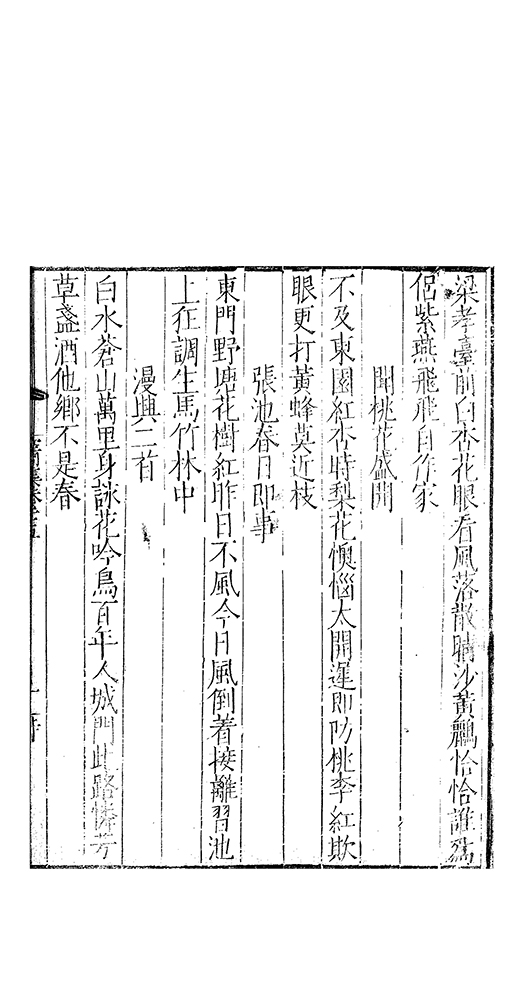 梁孝臺前白杏花眼看風落散晴沙黃鸝恰恰誰爲
侶紫燕飛飛自作家
聞桃花盛開
不及東園紅杏時梨花懊惱太開遲即防桃李紅欺
眼更打黃蜂莫近枝
張池春日即事
東門野塘花樹紅昨日不風今日風倒着接離習池
上狂調生馬竹林中
漫興二首
白水蒼山萬里身詠花吟鳥百年人城門此路憐芳
草盞酒他鄉不是春